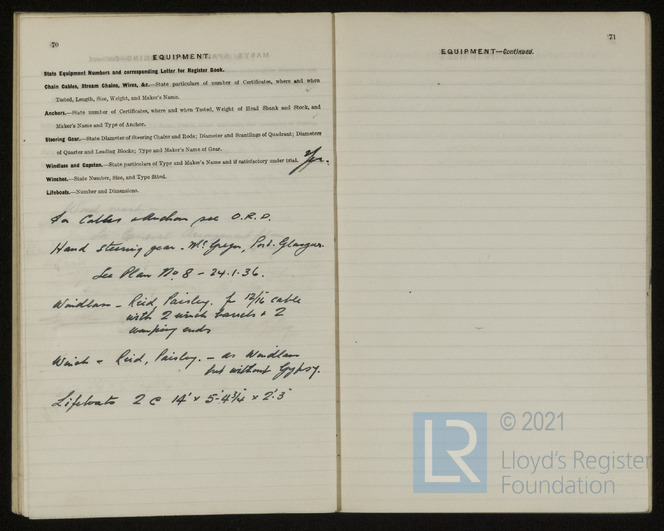 70
EQUIPMENT.
State Equipment Numbers and corresponding Letter for Register Book.
Chain Cables, Stream Chains, Wires, &c.—State particulars of number of Certificates, where and when
Tested, Length, Size, Weight, and Maker's Name.
Anchors.—State number of Certificates, where and when Tested, Weight of Head Shank and Stock, and
Maker's Name and Type of Anchor.
Steering Gear.—State Diameter of Steering Chains and Rods; Diameter and Scantlings of Quadrant; Diameters
of Quarter and Leading Blocks; Type and Maker's Name of Gear.
Windlass and Capstan.—State particulars of Type and Maker's Name and if satisfactory under trial. Yes.
Winches.—State Number, Size, and Type fitted.
Lifeboats.—Number and Dimensions.
For Cables & Anchors see O.R.D.
Hand steering gear - McGregor, Port-Glasgow.
See Plan No. 8 - 24.1.36.
Windlass - Reid, Paisley. for 12/16 cable
with 2 winch barrels & 2
warping ends
Winch - Reid, Paisley. - as Windlass
but without Gypsy.
Lifeboats 2 @ 14' x 5'-4¾" x 2'.3"
71
EQUIPMENT—Continued.
LR
© 2021
Lloyd's Register
Foundation